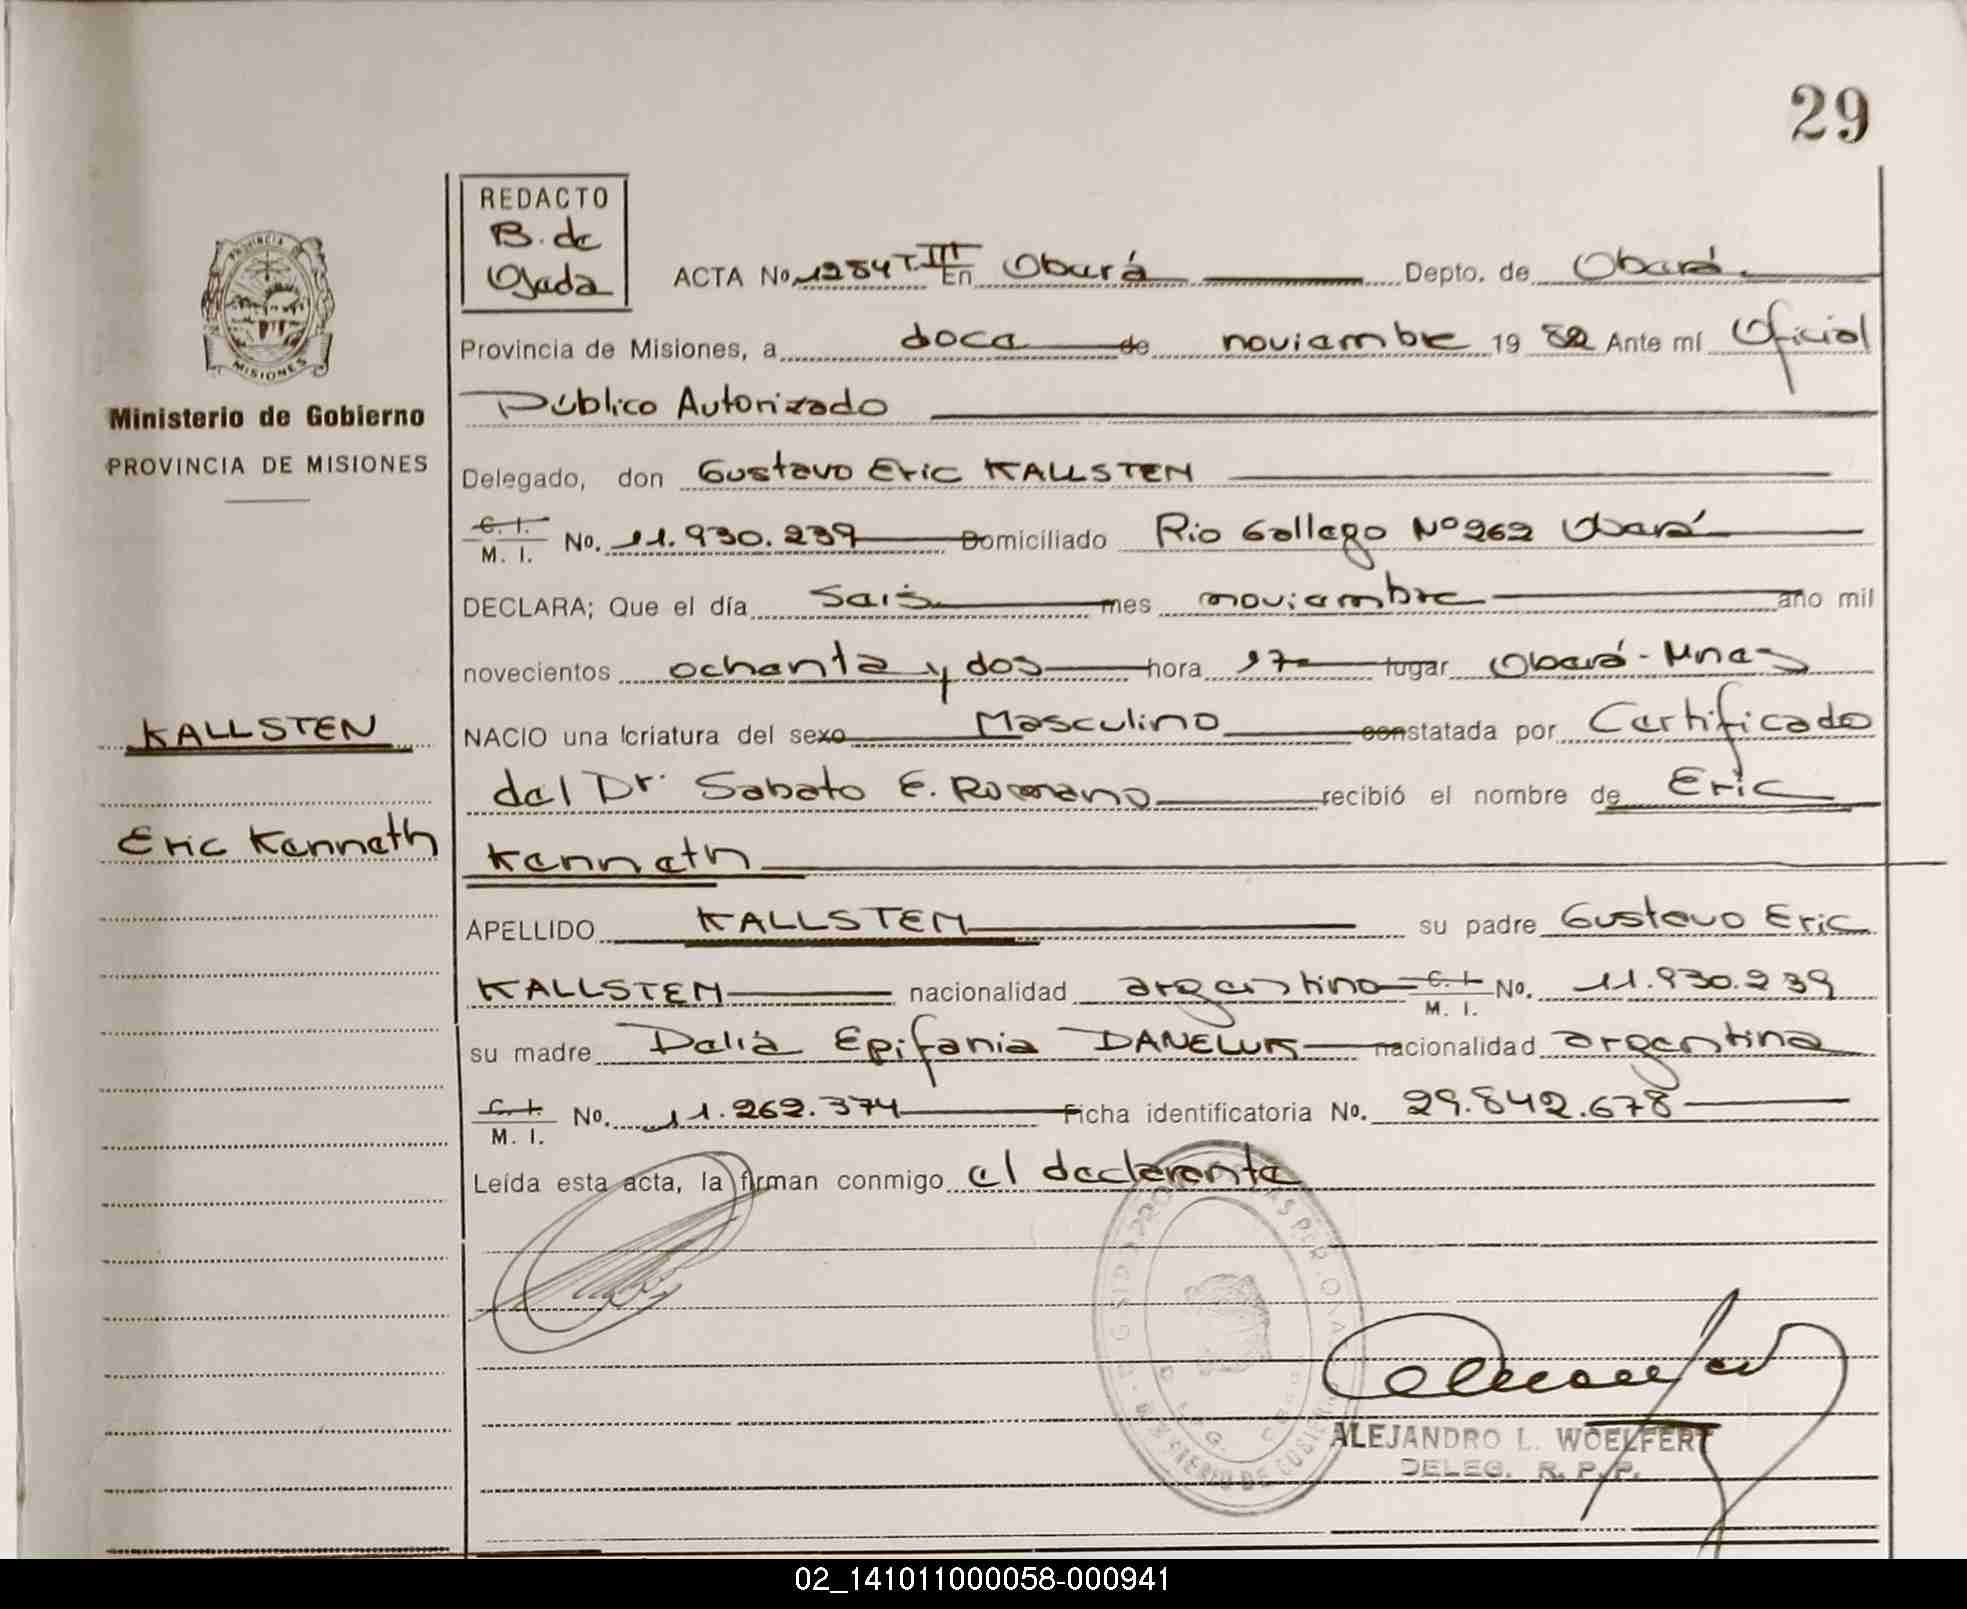 29
REDACTO
B. de
Ojeda
PROVINCIA DE
MISIONES
Ministerio de Gobierno
PROVINCIA DE MISIONES
ACTA No. 1284 T. III En Oberá Depto. de Oberá
Provincia de Misiones, a doce de noviembre 19 82 Ante mí Oficial
Público Autorizado
Delegado, don Gustavo Eric KALLSTEN
C. I.
M. I. No. 11.930.239 Domiciliado Rio Gallego Nº 262 Oberá
DECLARA; Que el día seis mes noviembre año mil
novecientos ochenta y dos hora 17 lugar Oberá - Mnes
KALLSTEN
NACIO una criatura del sexo Masculino constatada por Certificado
del Dr. Sabato E. Romano recibió el nombre de Eric
Eric Kenneth
Kenneth
APELLIDO KALLSTEN su padre Gustavo Eric
KALLSTEN nacionalidad argentino C. I. M. I. No. 11.930.239
su madre Delia Epifania DANELUK nacionalidad argentina
C. I.
M. I. No. 11.262.374 Ficha identificatoria No. 29.842.678
Leída esta acta, la firman conmigo el declarente
ALEJANDRO L. WOELFERT
DELEG. R. P. P.
02_141011000058-000941